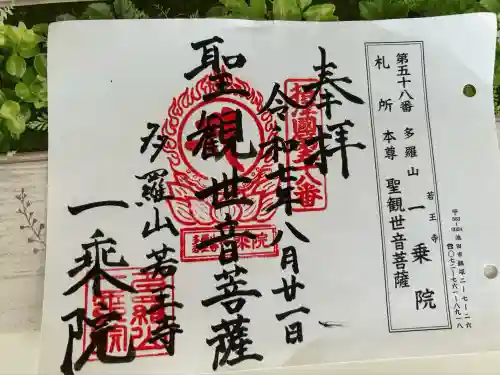 第五十八番 多羅山 若王寺
札所 本尊 一乗院
聖観世音菩薩
奉拝
令和七年八月廿一日
聖観世音菩薩
多羅山若王寺
一乗院